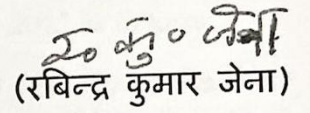 र० कु० जेना
(रबिन्द्र कुमार जेना)